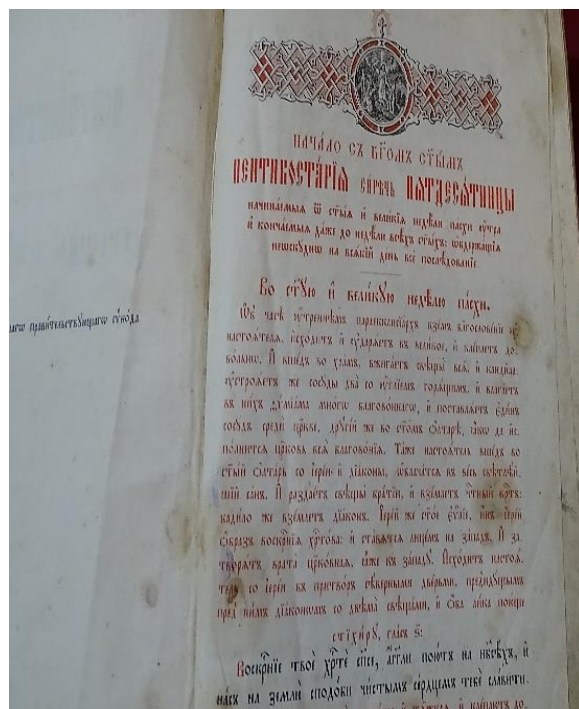 нагѡ прави́тельствꙋющагѡ сѷно́да
НАЧА́ЛО СЪ БГ҃ОМЪ СТ҃Ы́МЪ
ПЕНТИКОСТА́РІѦ СИ́РѢЧЬ ПѦТДЕСѦ́ТНИЦЫ
начина́емыѧ ѿ ст҃ы́ѧ и҆ вели́кїѧ недѣ́ли па́схи ᲂу҆́тра
и҆ конча́емыѧ да́же до недѣ́ли всѣ́хъ ст҃ы́хъ: ѡ҆держа́щїѧ
неѡскꙋ́днѡ на всѧ́кїй де́нь всѐ послѣ́дованїе.
Во ст҃ꙋ́ю и҆ вели́кꙋю недѣ́лю па́схи.
Ѡ҆ часѣ̀ ᲂу҆́треннѣмъ параекклисїа́рхъ взе́мъ бл҃гослове́нїе ѿ
настоѧ́телѧ, и҆схо́дитъ и҆ ᲂу҆дарѧ́етъ въ вели́кое, и҆ клеплѣ́тъ до-
во́льнѡ. И҆ вше́дъ во хра́мъ, вжига́етъ свѣщы̀ всѧ̑, и҆ кандила:
ᲂу҆строѧ́етъ же сосꙋ́ды два̀ со ᲂу҆́глїемъ горѧ́щимъ, и҆ влага́етъ
въ ни́хъ ѳѷмїа́ма мно́гѡ бл҃гово́ннагѡ, и҆ поставлѧ́етъ є҆ди́нъ
сосꙋ́дъ средѝ цр҃кве, дрꙋгі́й же во ст҃ѣ́мъ ѻ҆лтарѣ̀, ꙗ҆́кѡ да и҆с-
по́лнитсѧ цр҃ковь всѧ̀ бл҃гово́нїѧ. Та́же настоѧ́тель вше́дъ во
ст҃ы́й ѻ҆лта́рь со і҆ере́и и҆ дїа́коны, ѡ҆блача́тсѧ въ ве́сь свѣтлѣ́й-
шїй са́нъ. И҆ раздае́тъ свѣщы̀ бра́тїи, и҆ взе́млетъ чⷭ҇тны́й крⷭ҇тъ:
кади́ло же взе́млетъ дїа́конъ. І҆ере́й же ст҃о́е є҆ѵⷢ҇лїе, и҆́нъ і҆ере́й
ѻ҆́бразъ воскрⷭ҇нїѧ хрⷭ҇то́ва: и҆ ста́вѧтсѧ лице́мъ на за́падъ. И҆ за-
творѧ́ютъ врата̀ цр҃кѡ́внаѧ, ꙗ҆̀же къ за́падꙋ. И҆схо́дитъ настоѧ́-
тель со і҆ере́и въ притво́ръ сѣ́верными две́рьми, предидꙋ́щымъ
пред̾ ни́мъ дїа́конѡмъ со двѣма̀ свѣща́ми, и҆ ѻ҆́ба ли́ка пою́ще
стїхи́рꙋ, гла́съ ѕ҃:
Воскрⷭ҇нїе твоѐ хрⷭ҇тѐ сп҃се, а҆́гг҃ли пою́тъ на нб҃сѣ́хъ, и҆
на́съ на землѝ сподо́би чи́стымъ се́рдцемъ тебѐ сла́вити.